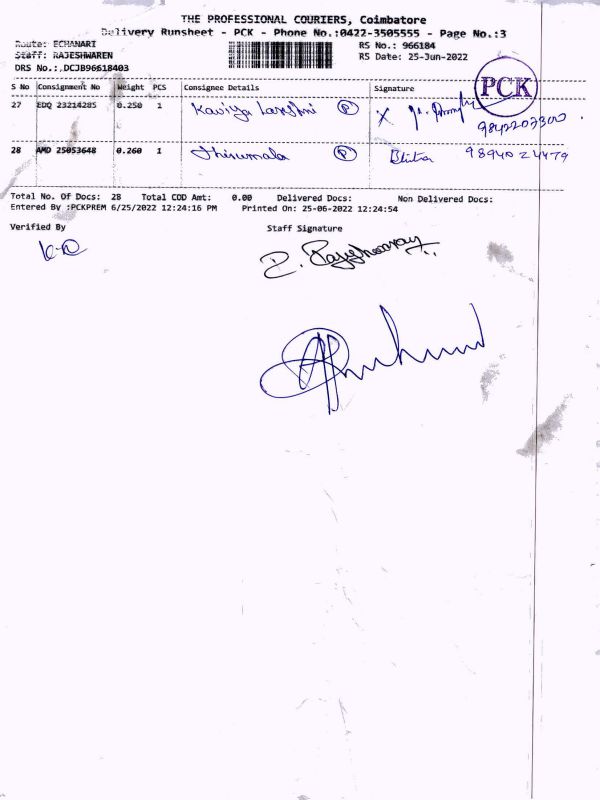 THE PROFESSIONAL COURIERS, Coimbatore
Delivery Runsheet - PCK - Phone No.:0422-3505555 - Page No.:3
Route: ECHANARI
RS No.: 966184
Staff: RAJESHWAREN
RS Date: 25-Jun-2022
DRS No.:,DCJB96618403
PCK
S No Consignment No Weight PCS Consignee Details Signature
27 EDQ 23214285 0.250 1 Kaviya Lakshmi P X
28 AMD 25053648 0.260 1 Thirumala P 98940 24479
Total No. Of Docs: 28 Total COD Amt: 0.00 Delivered Docs: Non Delivered Docs:
Entered By :PCKPREM 6/25/2022 12:24:16 PM Printed On: 25-06-2022 12:24:54
Verified By Staff Signature